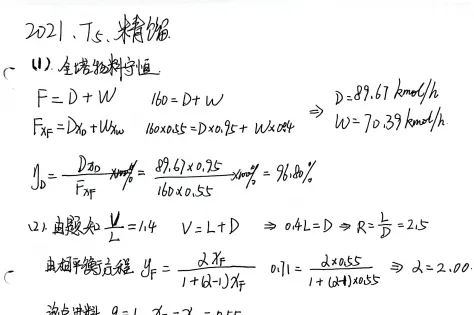 2021. T5. 精馏
(1). 全塔物料守恒
F=D+W 160=D+W ⇒ D=89.67 kmol/h
FxF=DxD+WxW 160×0.55=D×0.95+W×0.04 W=70.39 kmol/h
ηD=DxD/FxF×100%=89.67×0.95/160×0.55×100%=96.80%
(2). 由题知 V/L=1.4 V=L+D ⇒ 0.4L=D ⇒ R=L/D=2.5
由相平衡方程 yF=αxF/1+(α-1)xF 0.71=α×0.55/1+(α-1)×0.55 ⇒ α=2.00.
泡点进料 q=1 xq=xF=0.55